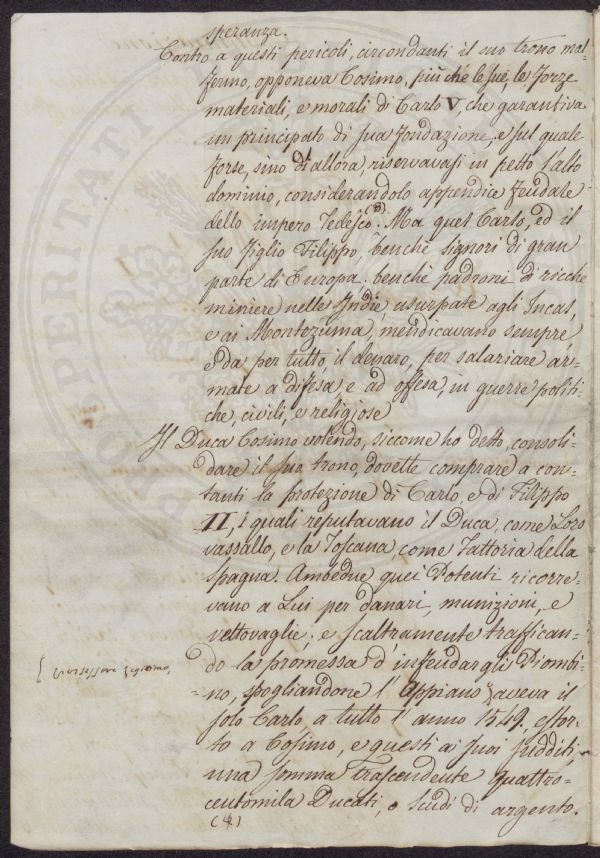 speranza.
Contro a questi pericoli, circondanti il suo trono mal
fermo, opponeva Cosimo, più che le sue, le forze
materiali, e morali di Carlo V, che garantiva
un principato di sua fondazione, e sul quale
forse, sino d'allora, riservavasi in petto l'alto
dominio, considerandolo appendice feudale
dello impero Tedesco (3). Ma quel Carlo, ed il
suo figlio Filippo, benchè signori di gran
parte di Europa, benchè padroni di ricche
miniere nelle Indie, usurpate agli Incas,
e ai Montezuma, mendicavano sempre,
e da per tutto il denaro, per salariare ar-
mate a difesa e ad offesa, in guerre politi-
che, civili, e religiose
Il Duca Cosimo volendo, siccome ho detto, consoli-
dare il suo trono, dovette comprare a con-
tanti la protezione di Carlo, e di Filippo
II, i quali reputavano il Duca, come Loro
vassallo, e la Toscana, come fattoria della
Spagna. Ambedue quei Potenti ricorre-
vano a Lui per danari, munizioni, e
vettovaglie; e scaltramente traffican-
do la promessa d'infeudargli Piombi-
{ possessore legittimo,
no, spogliandone l'Appiano { aveva il
solo Carlo, a tutto l'anno 1549, estor-
to a Cosimo, e questi ai suoi sudditi,
una somma trascendente quattro-
centomila Ducati, o Scudi di argento.
(4)
PROSPERITATI